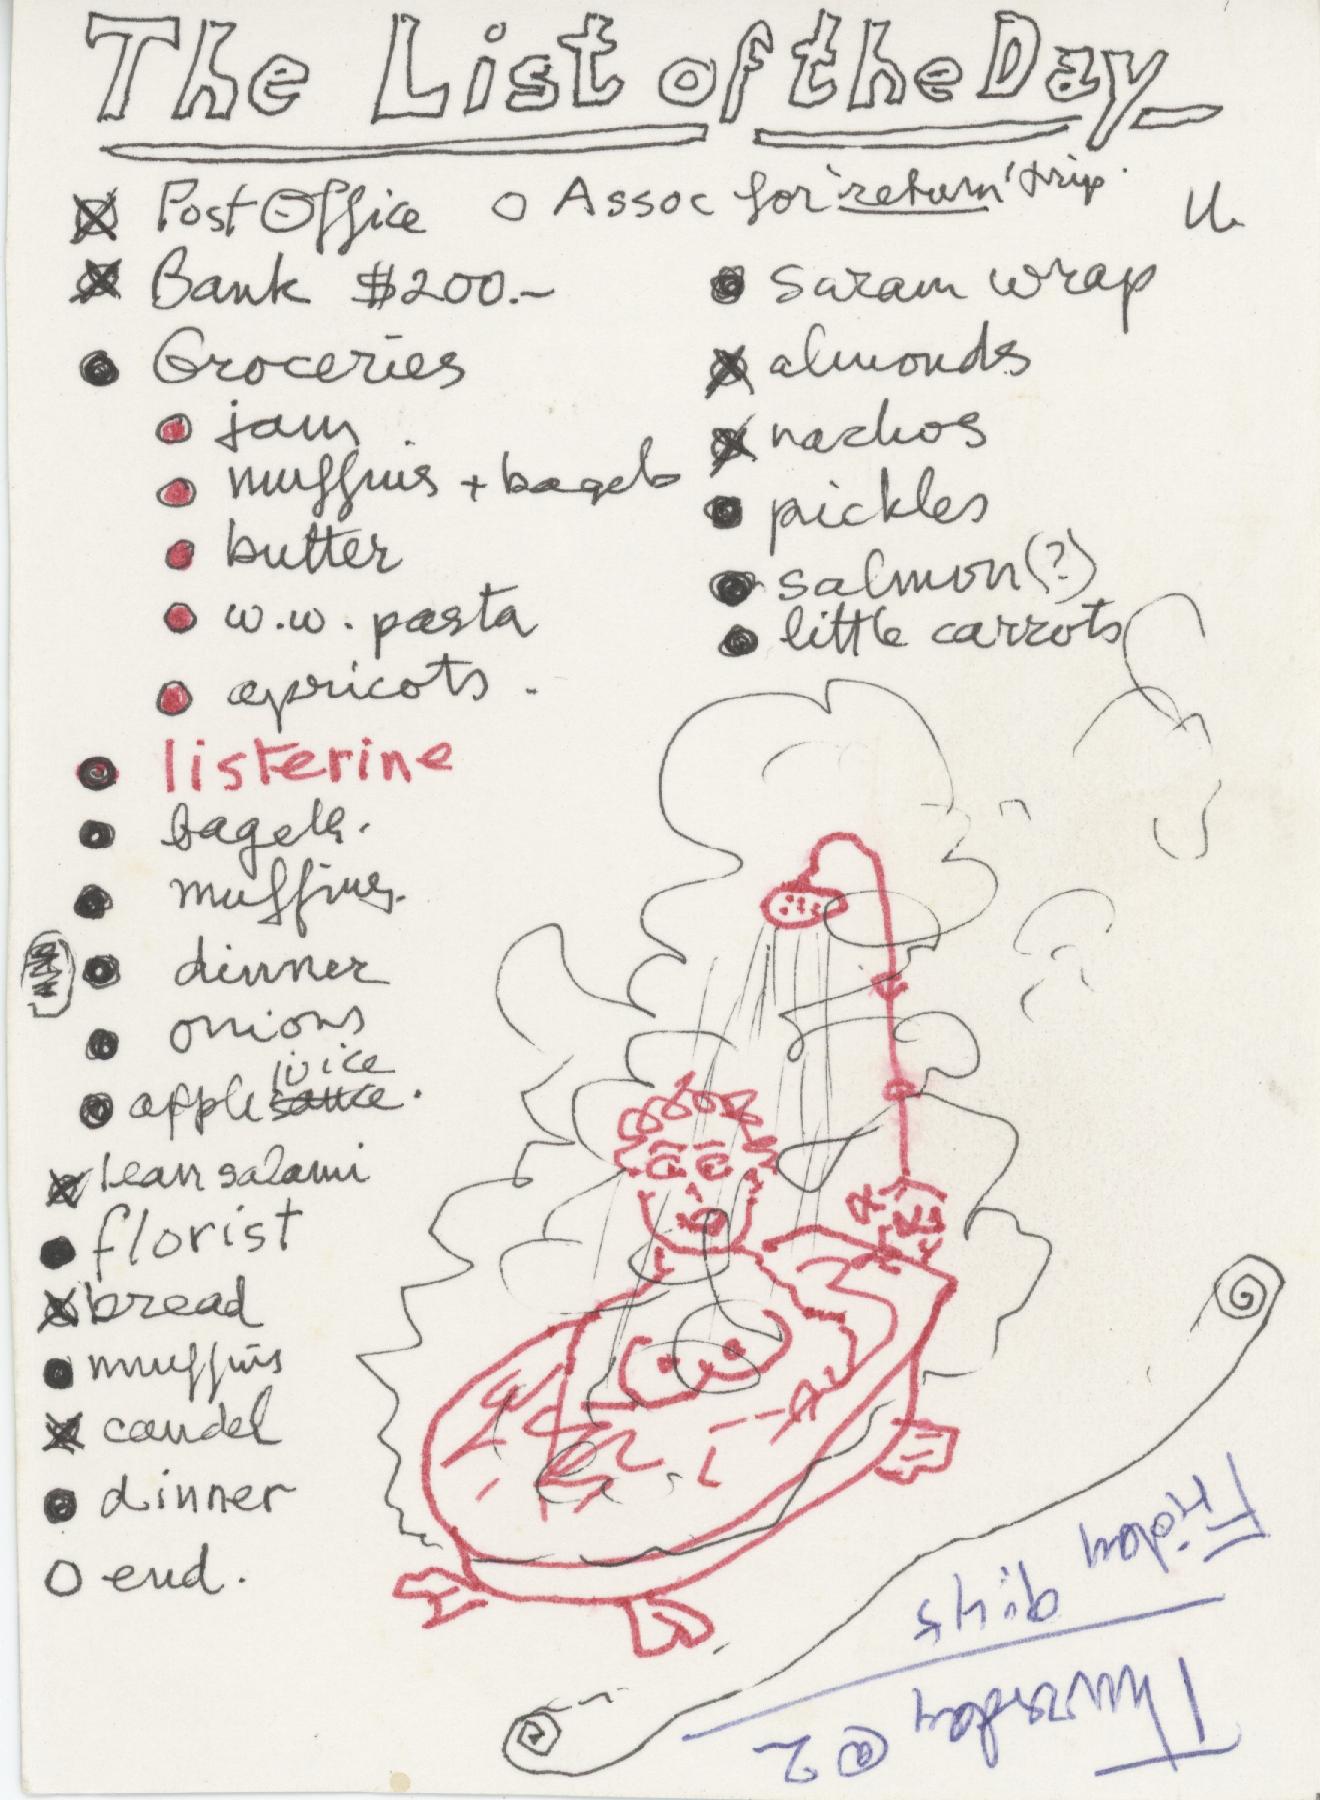 The List of the Day
Post Office
Assoc for 'return' trip.
Bank $200.-
Groceries
jam
muffins + bagels
butter
w.w. pasta
apricots.
listerine
bagels.
muffins.
dinner
onions
juice
apple sauce.
lean salami
florist
bread
muffins
candel
dinner
end.
saran wrap
almonds
nachos
pickles
salmon (?)
little carrots
Thursday @ 2
9:45
Friday